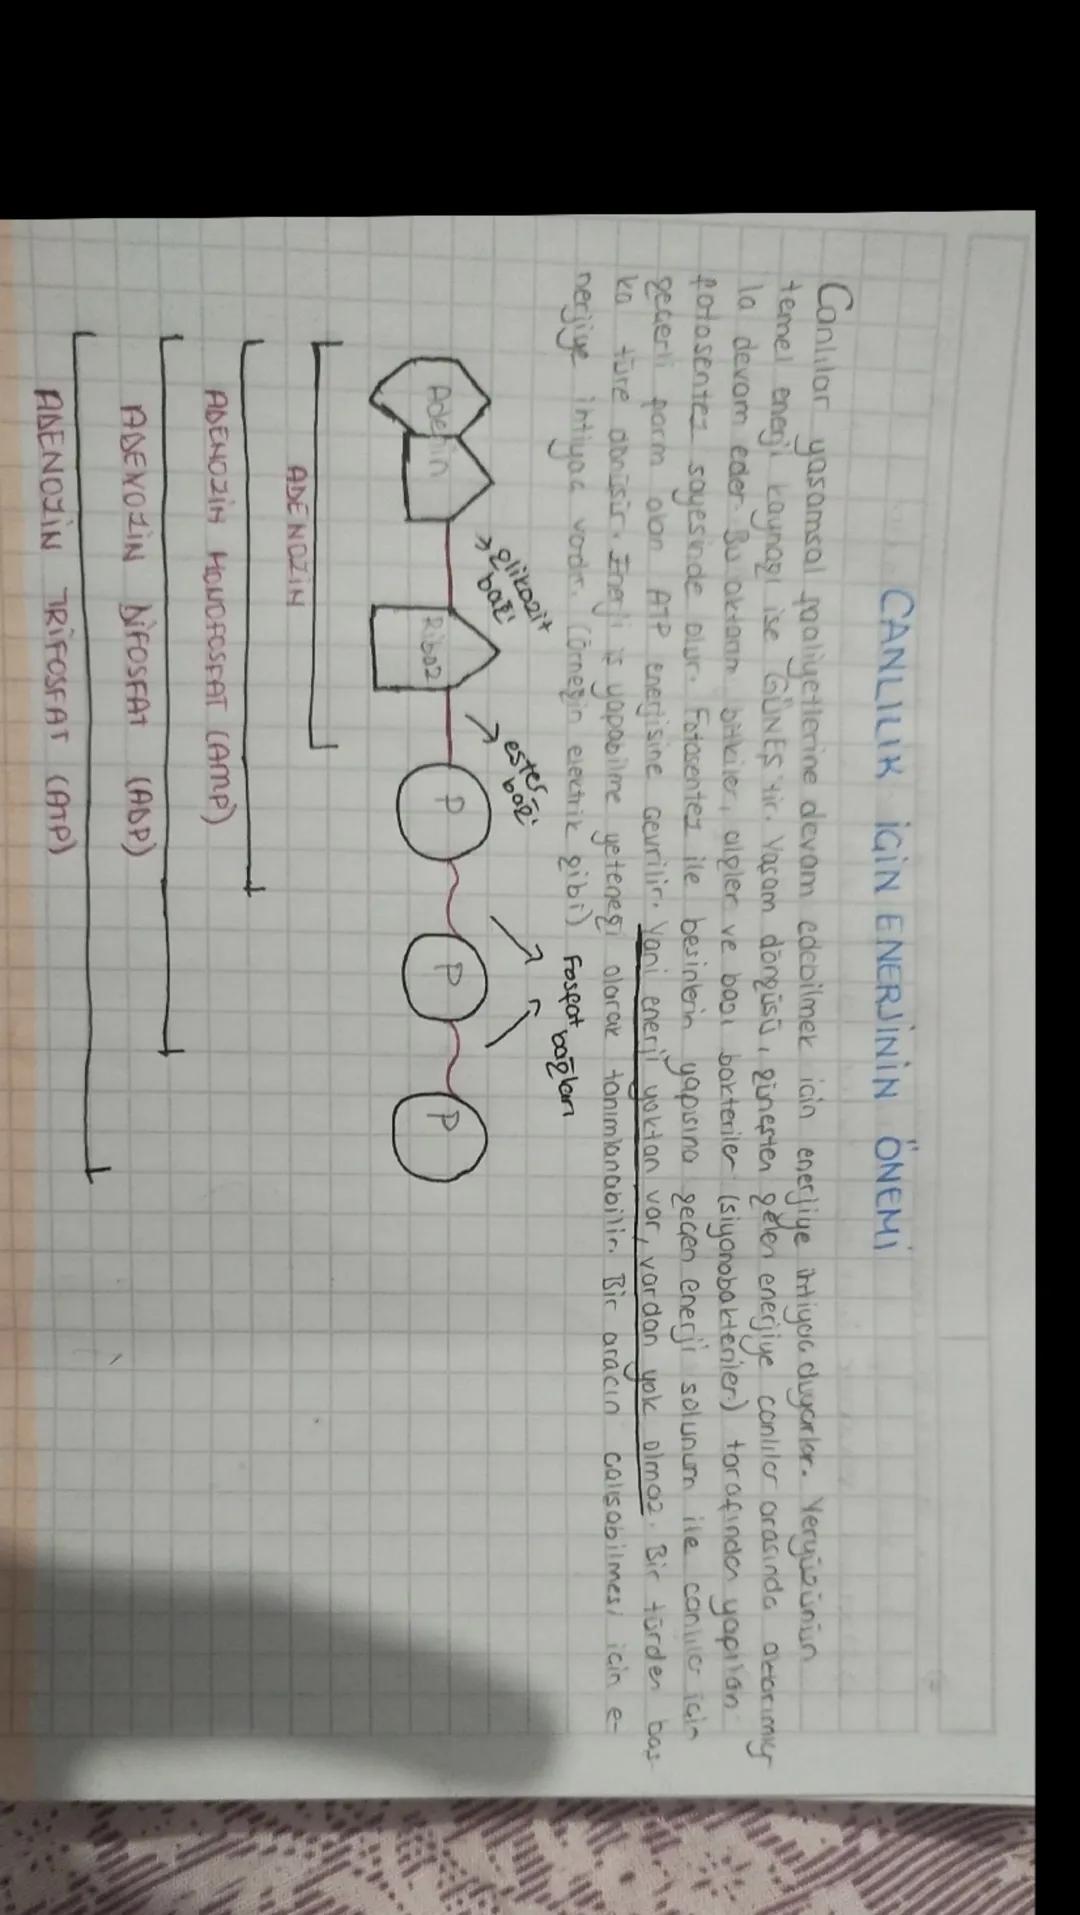 CANLILIK İÇİN ENERJİNİN ÖNEMİ
Canlılar yaşamsal faaliyetlerine devam edebilmek için enerjiye ihtiyaç duyarlar. Yeryüzünün
temel enerji kaynağı ise GÜNEŞ'tir. Yaşam döngüsü, güneşten gelen enerjiye canlılar arasında aktarımıy
la devam eder. Bu aktarım bitkiler, algler ve bazı bakteriler (siyanobakteriler) tarafından yapılan
fotosentez sayesinde olur. Fotosentez ile besinlerin yapısına geçen enerji solunum ile canlılar için
geçerli form olan ATP enerjisine çevrilir. Yani enerji yoktan var, vardan yok olmaz. Bir türden baş
ka türe dönüşür. Enerji iş yapabilme yeteneği olarak tanımlanabilir. Bir aracın çalışabilmesi için e-
nerjiye ihtiyaç vardır. (Örneğin elektrik gibi)
glikozit
bağı
ester
bağı
Fosfat bağları
Adenin
Riboz
P
P
P
ADENOZİN
ADENOZİN MONOFOSFAT (AMP)
ADENOZİN DİFOSFAT (ADP)
ADENOZİN TRİFOSFAT (ATP)